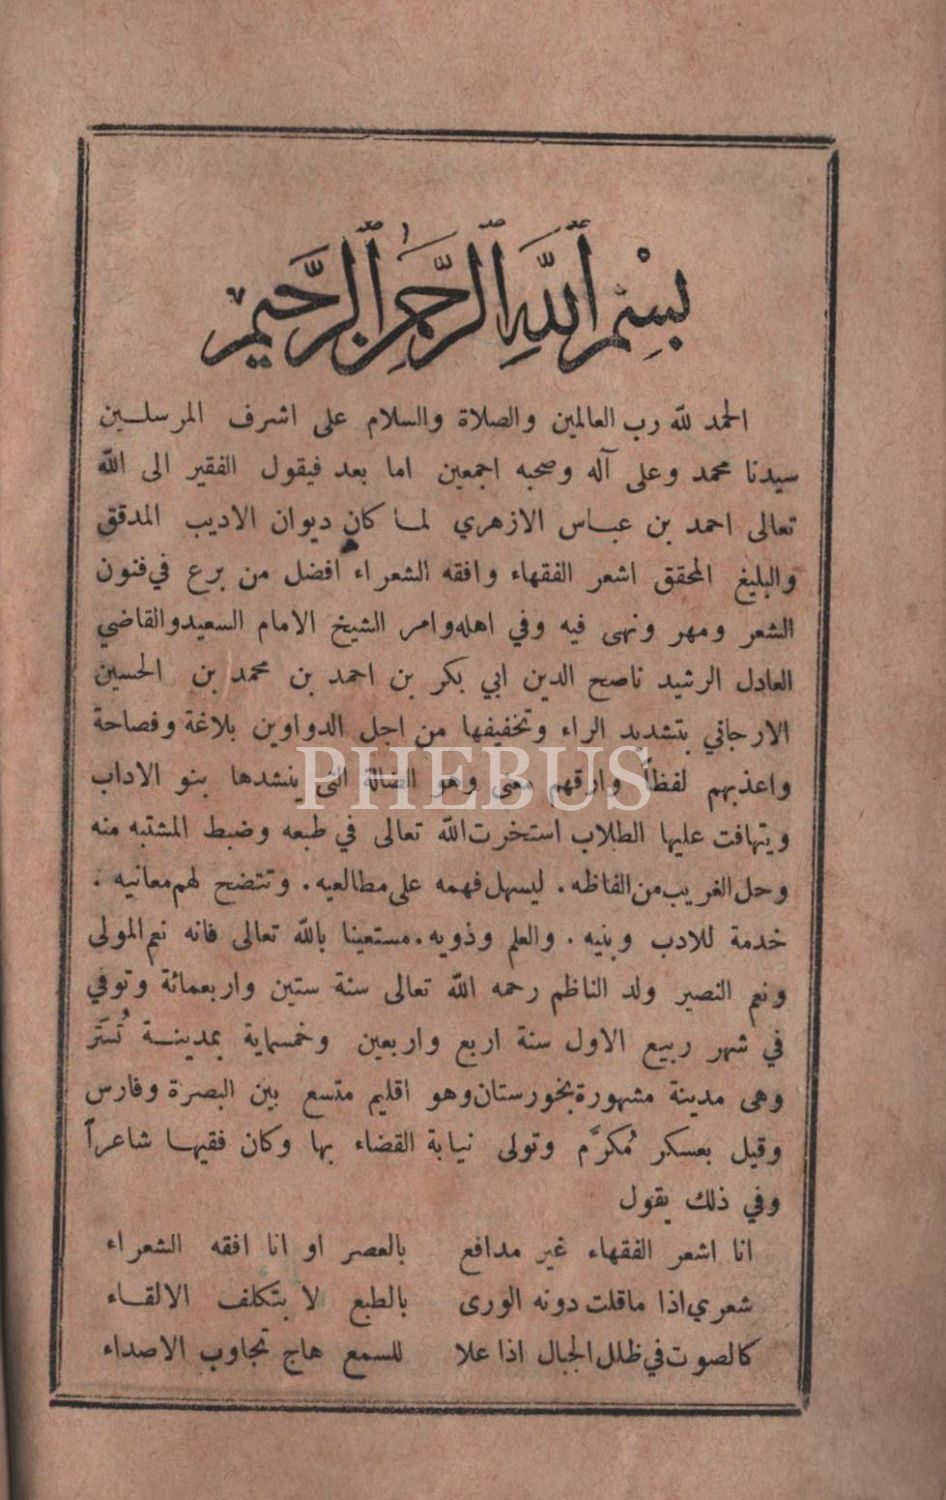 بسم الله الرحمن الرحيم
الحمد لله رب العالمين والصلاة والسلام على اشرف المرسلين
سيدنا محمد وعلى آله وصحبه اجمعين اما بعد فيقول الفقير الى الله
تعالى احمد بن عباس الازهري لما كان ديوان الاديب المدقق
والبليغ المحقق اشعر الفقهاء وافقه الشعراء أفضل من برع في فنون
الشعر ومهر ونهى فيه وفي اهله وامر الشيخ الامام السعيد والقاضي
العادل الرشيد ناصح الدين ابي بكر بن احمد بن محمد بن الحسين
الارجاني بتشديد الراء وتخفيفها من اجل الدواوين بلاغة وفصاحة
واعذبهم لفظاً وارقهم معنى وهو الضالة التي ينشدها بنو الاداب
PHEBUS
ويتهافت عليها الطلاب استخرت الله تعالى في طبعه وضبط المشتبه منه
وحل الغريب من الفاظه . ليسهل فهمه على مطالعيه . وتتضح لهم معانيه .
خدمة للادب وبنيه . والعلم وذويه . مستعينا بالله تعالى فانه نعم المولى
ونعم النصير ولد الناظم رحمه الله تعالى سنة ستين واربعمائة وتوفي
في شهر ربيع الاول سنة اربع واربعين وخمسماية بمدينة تُستَر
وهي مدينة مشهورة بخورستان وهو اقليم متسع بين البصرة وفارس
وقيل بعسكر مُكرَّم وتولى نيابة القضاء بها وكان فقيها شاعراً
وفي ذلك يقول
انا اشعر الفقهاء غير مدافع بالعصر او انا افقه الشعراء
شعري اذا ماقلت دونه الورى بالطبع لا بتكلف الالقاء
كالصوت في ظلل الجبال اذا علا للسمع هاج تجاوب الاصداء